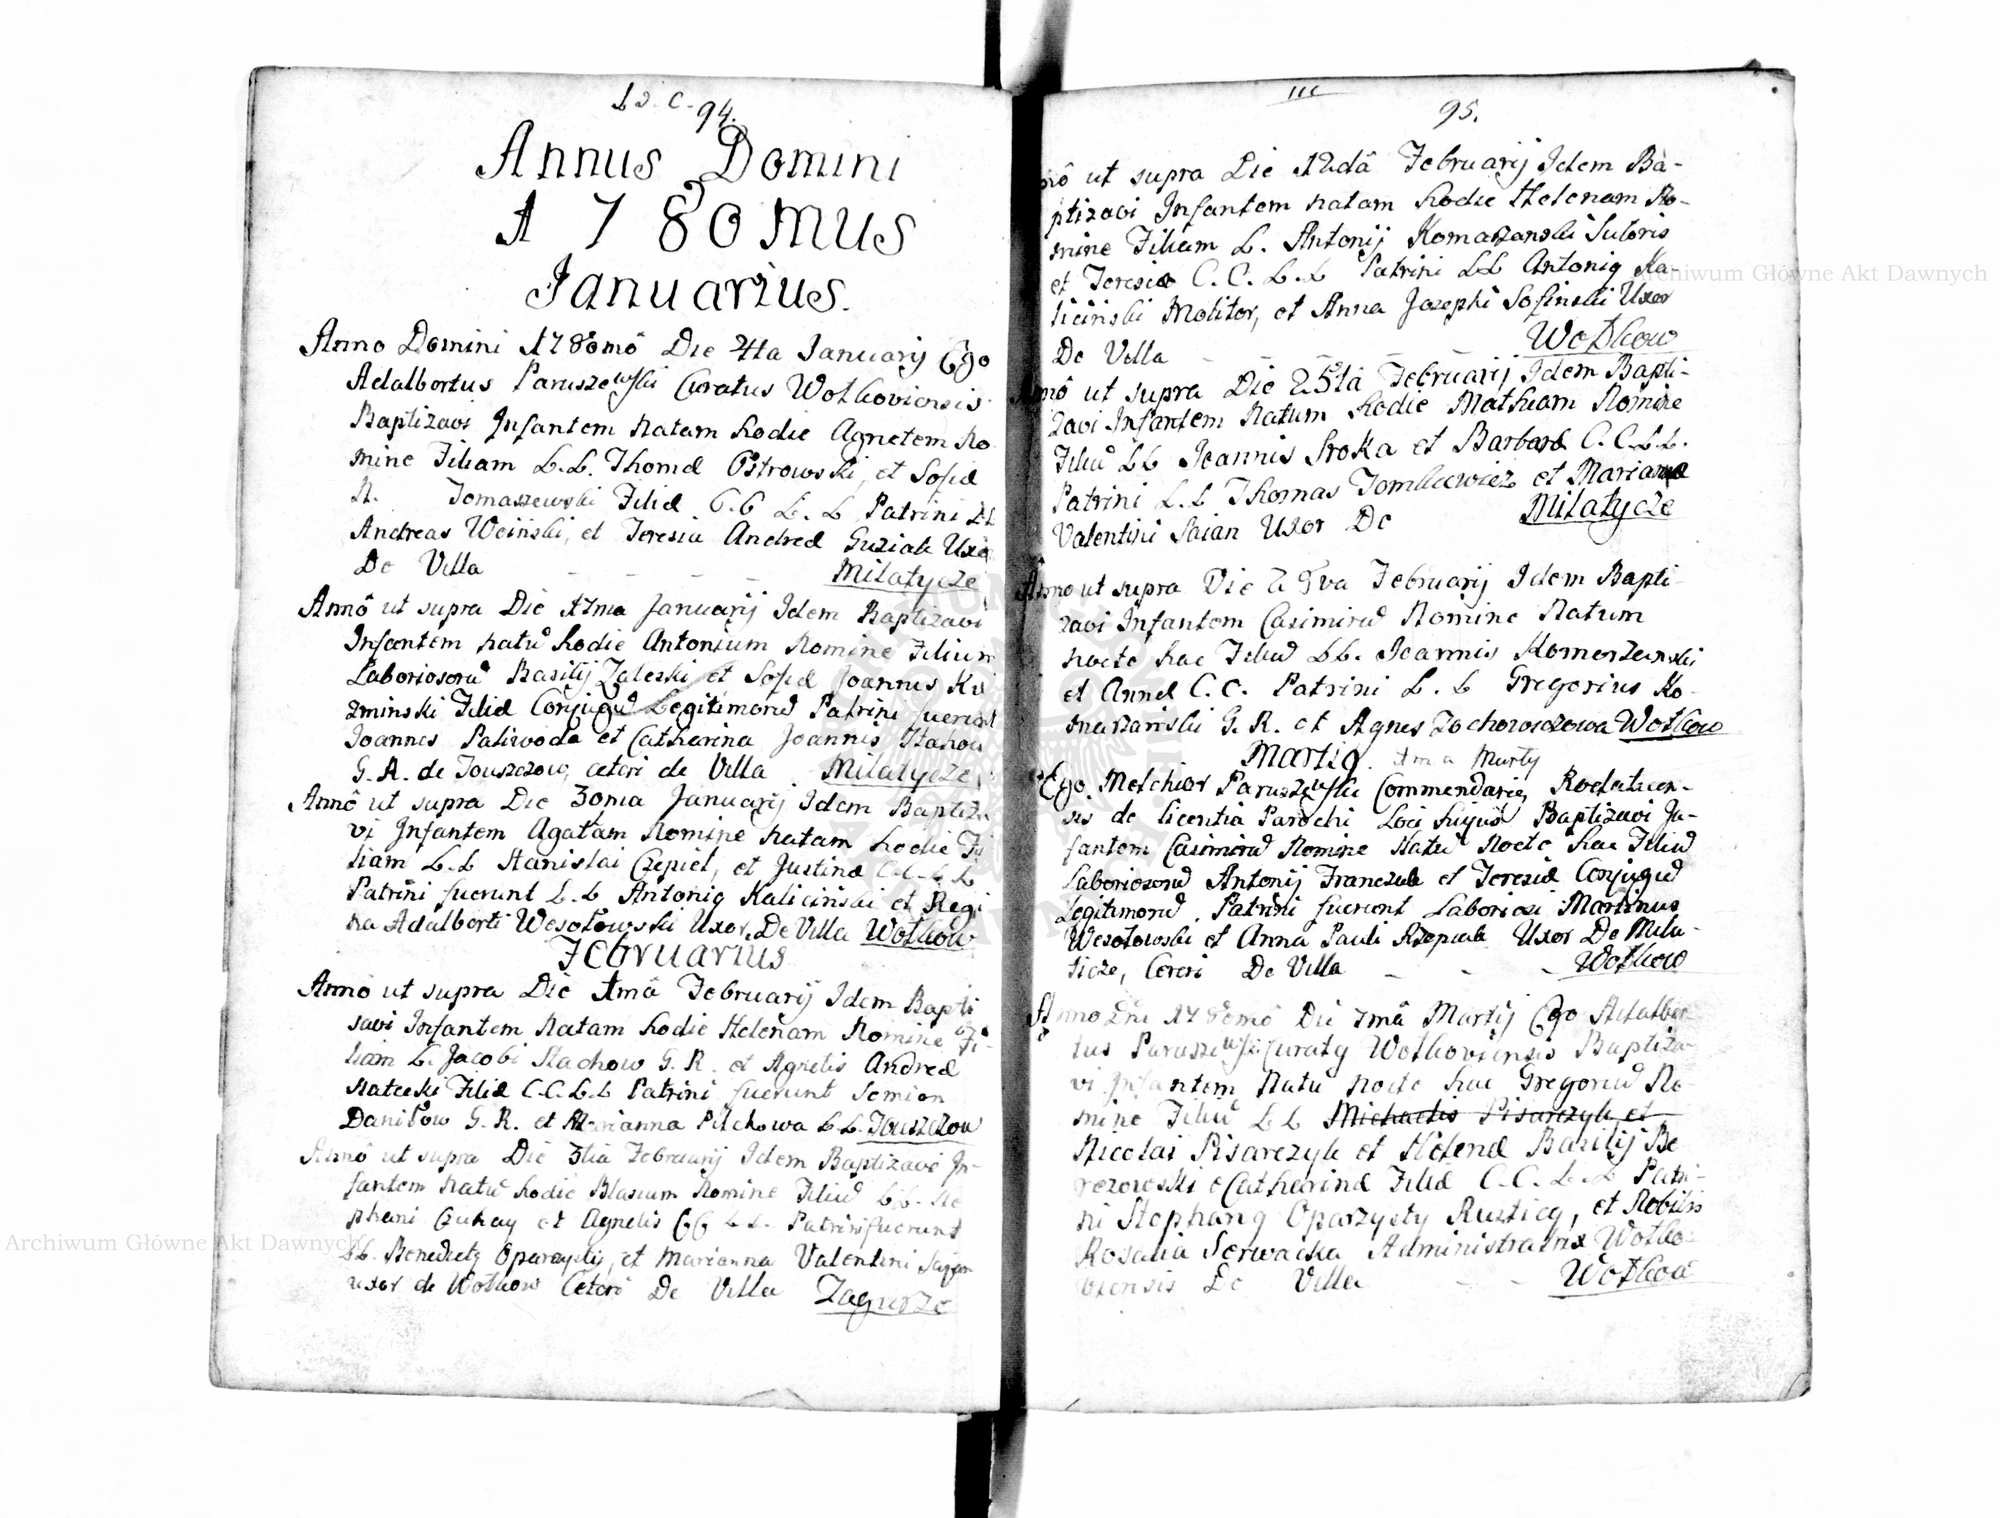 94.
Annus Domini
1780mus
Januarius.
Anno Domini 1780mô Die 4ta Januarij Ego
Adalbertus Paruszewski Curatus Wołkoviensis
Baptizavi Infantem Natam hodie Agnetem No
mine Filiam L.L. Thomæ Ostrowski, et Sofiæ
N. Tomaszewski Filiæ C.C L. L Patrini LL
Andreas Woiński, et Teresia Andreæ Guziak Uxor
De Villa - - - - Milatycze
Annô ut supra Die 17ma Januarij Idem Baptizavi
Infantem natū hodie Antonium Nomine Filium
Laboriosorū Basilij Zaleski et Sofiæ Joannis Ku
zminski Filiæ Conjugū Legitimorū Patrini fuerunt
Joannes Paliwoda et Catharina Joannis Stahow
G. R. de Touszczow, ceteri de Villa Milatycze
Annô ut supra Die 30ma Januarij Idem Baptiza
vi Infantem Agatam Nomine Natam hodie Fi
liam L.L Stanislai Czepiel, et Justinæ C.C.L.L
Patrini fuerunt L.L Antoniq Kaliciński et Regi
na Adalberti Wesołowski Uxor. De Villa Wołkow
Februarius
Annô ut supra Die 1mâ Februarij Idem Bapti
savi Infantem Natam hodie Helenam Nomine Fi-
liam L. Jacobi Stachow G. R. et Agnetis Andreæ
Filiæ C.C.L.L Patrini fuerunt Semion
Daniłow G. R. et Marianna Pilchowa L.L. Touszczow
Annô ut supra Die 3tia Februarij Idem Baptizavi In-
fantem Natū hodie Blasium Nomine Filiū L.L. Ste
phani et Agnetis CC LL. Patrini fuerunt
LL. Benedictq Oparzysty, et Marianna Valentini Saian
uxor de Wołkow Ceteri De Villa Zagurze
95.
ut supra Die 12dâ Februarij Idem Ba-
ptizavi Infantem Natam hodie Helenam No-
mine Filiam L. Antonij Komarzanski Sutoris
et Teresiæ C.C. L.L Patrini LL Antoniq Ka-
liciński Molitor, et Anna Josephi Sosinski Uxor
De Villa - - - - Wołkow
Annô ut supra Die 25tâ Februarij Idem Bapti-
zavi Infantem Natum hodie Mathiam Nomine
Filiū LL Joannis Sroka et Barbaræ C.C.L.L.
Patrini L.L Thomas Tomkiewicz et Marianna
Valentini Saian Uxor De Milatycze
Anno ut supra Die 28va Februarij Idem Bapti-
zavi Infantem Casimirū Nomine Natum
nocte hac Filiū LL. Joannis Komorzanski
et Annæ C.C. Patrini L.L Gregorius Ko-
marzanski G. R. et Agnes Zochorowczowa Wołkow
Martiq. 1ma Martij
Ego Melchior Paruszewski Commendariq Rodatycen-
sis de licentia Parochi Loci hujus Baptizavi In-
fantem Casimirū Nomine Natū Nocte hac Filiū
Laboriosorū Antonij Franczuk et Teresiæ Conjugū
Legitimorū. Patrini fuerunt Laboriosi Martinus
Wesołowski et Anna Pauli Rzepiak Uxor De Mila-
ticze, Ceteri De Villa - - - Wołkow
Anno Dni 1780mô Die 7mâ Martij Ego Adalber
tus Paruszewski Curatq Wołkoviensis Baptiza
vi Infantem Natū nocte hac Gregoriū No-
mine Filiū L L Michaelis Pisarczyk et
Nicolai Pisarczyk et Helenæ Basilij Be
rezowski Catharinæ Filiæ C.C. L.L Patri-
ni Stephanq Oparzysty Rusticq, et Nobilis
Rosalia Serwacka Administratrix Wołko
viensis De Villa - - Wołkow
Archiwum Główne Akt Dawnych
Archiwum Główne Akt Dawnych